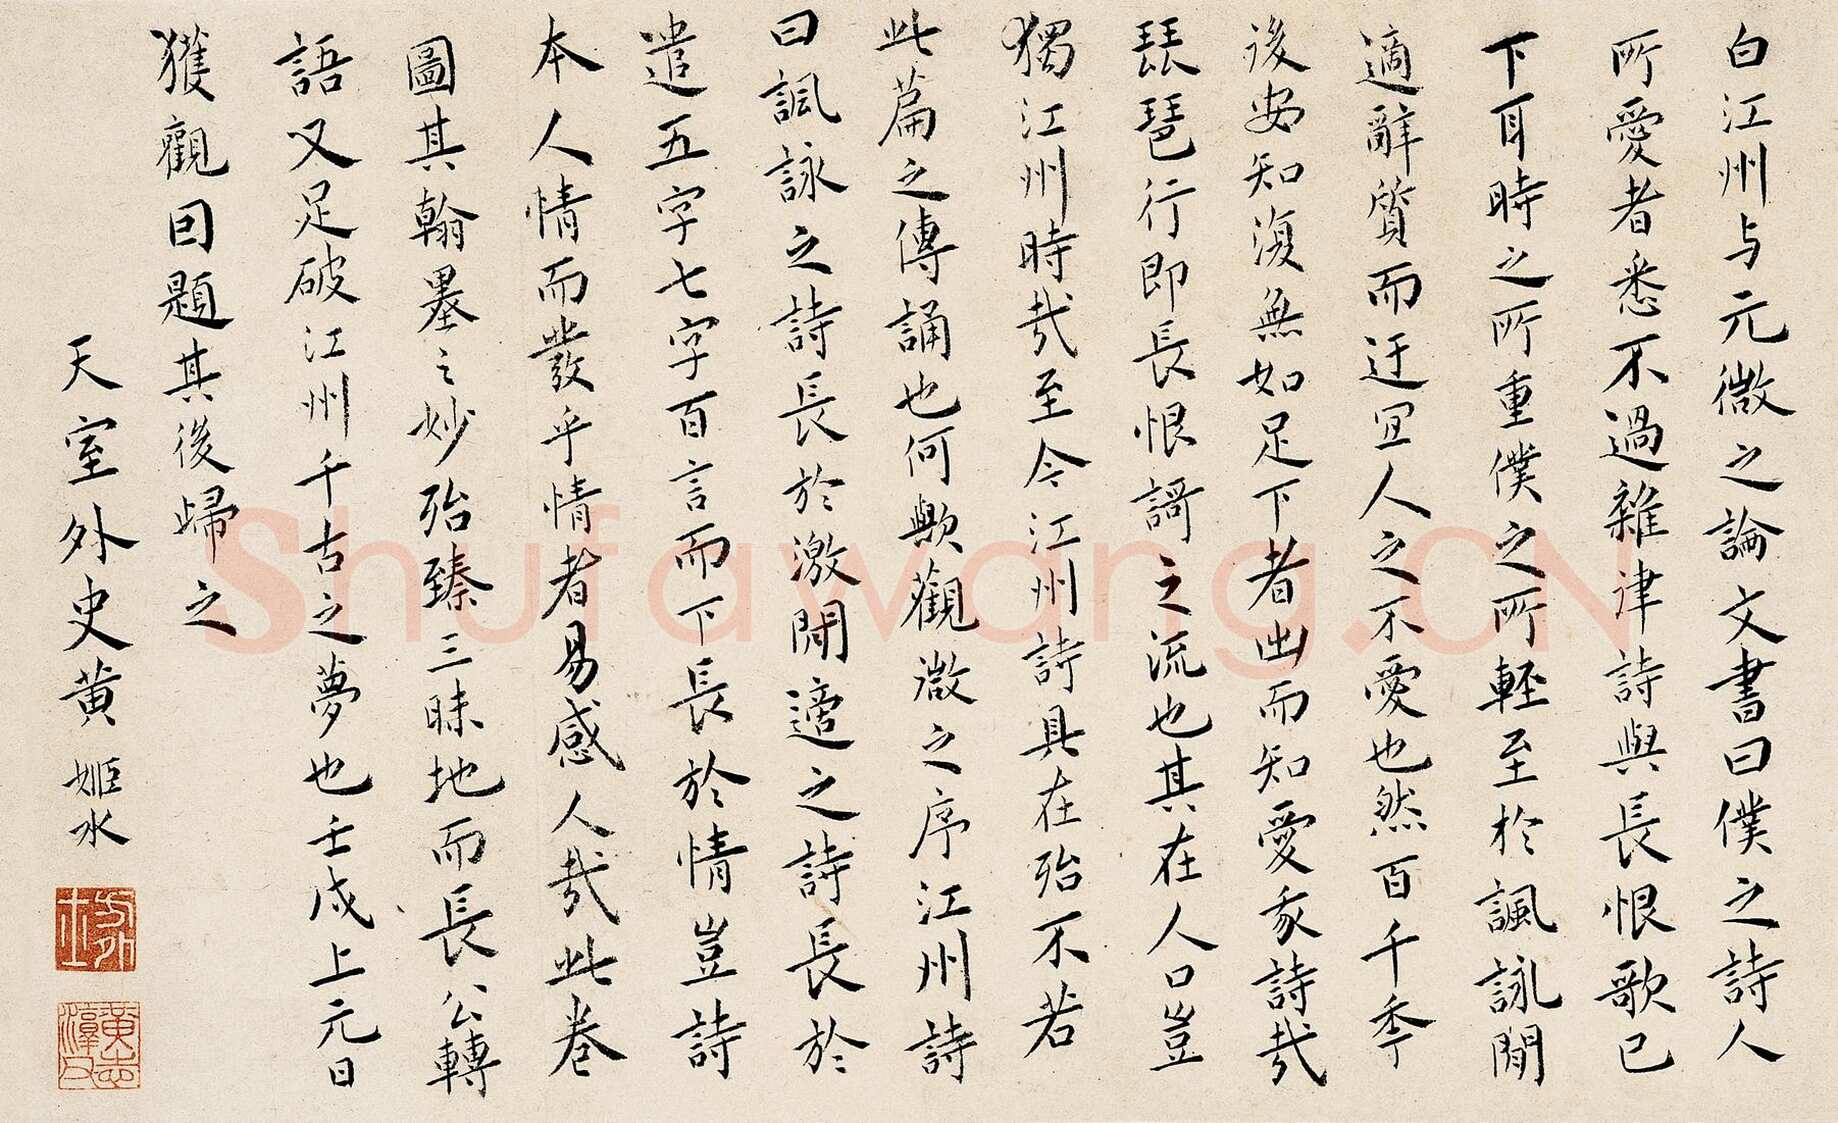 白江州与元微之論文書曰僕之詩人
所愛者悉不過雜津詩與長恨歌已
下耳時之所重僕之所輕至於諷詠閒
適辭質而迂宜人之不愛也然百千季
後安知復無如足下者出而知愛我詩哉
琵琶行即長恨謌之流也其在人口豈
獨江州時哉至今江州詩具在殆不若
此篇之傳誦也何歟觀微之序江州詩
曰諷詠之詩長於激閒適之詩長於
遣五字七字百言而下長於情豈詩
本人情而發乎情者易感人哉此卷
圖其翰墨之妙殆臻三昧地而長公轉
語又足破江州千古之夢也壬戌上元日
獲觀曰題其後歸之
天室外史黄姬水
Shufawang.CN